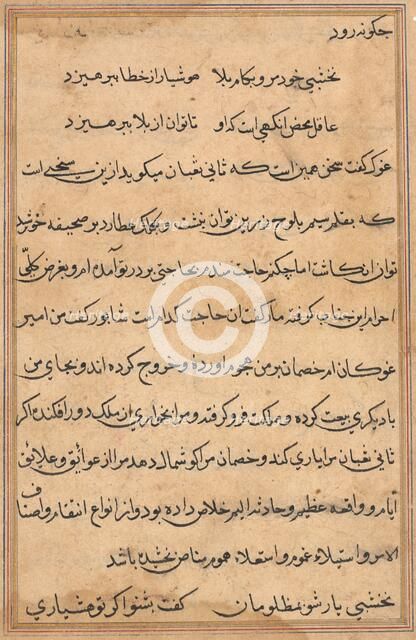 چگونه رود
نخشبی خود مرو بکام بلا هوشیار از خطا بپرهیزد
عاقل محض آنکهی است که او تا توان از بلا بپرهیزد
غوک گفت سخن همین است که ثانی ثعبان میگوید ازین سخنی است
که بقلم سیم بلوح زرین توان نبشت و بکلک عطارد بر صحیفه خورشید
توان انکاشت اما چکنم حاجت مندم بحاجتی بر در تو آمده ام و بغرض کلّی
احرام این جناب گرفته مار گفت آن حاجت کدام است شاپور گفت من امیر
غوکان ام خصمان بر من هجوم آورده و خروج کرده اند و بجای من
با دیگری بیعت کرده و مملکت فرو گرفته و مرا بخواری از ملک دور افکنده اگر
ثانی ثعبان مرا یاری کند و خصمان مرا گوشمال دهد مرا از عوائق و علائق
ایام و واقعه عظیم و حادثه الیم خلاص داده بود و از انواع انتقام و اصناف
آلام و استیلاء غموم و استعلاء هموم مناص بخشیده باشد
نخشبی یار شو بمظلومان گفت بشنو اگر تو هشیاری